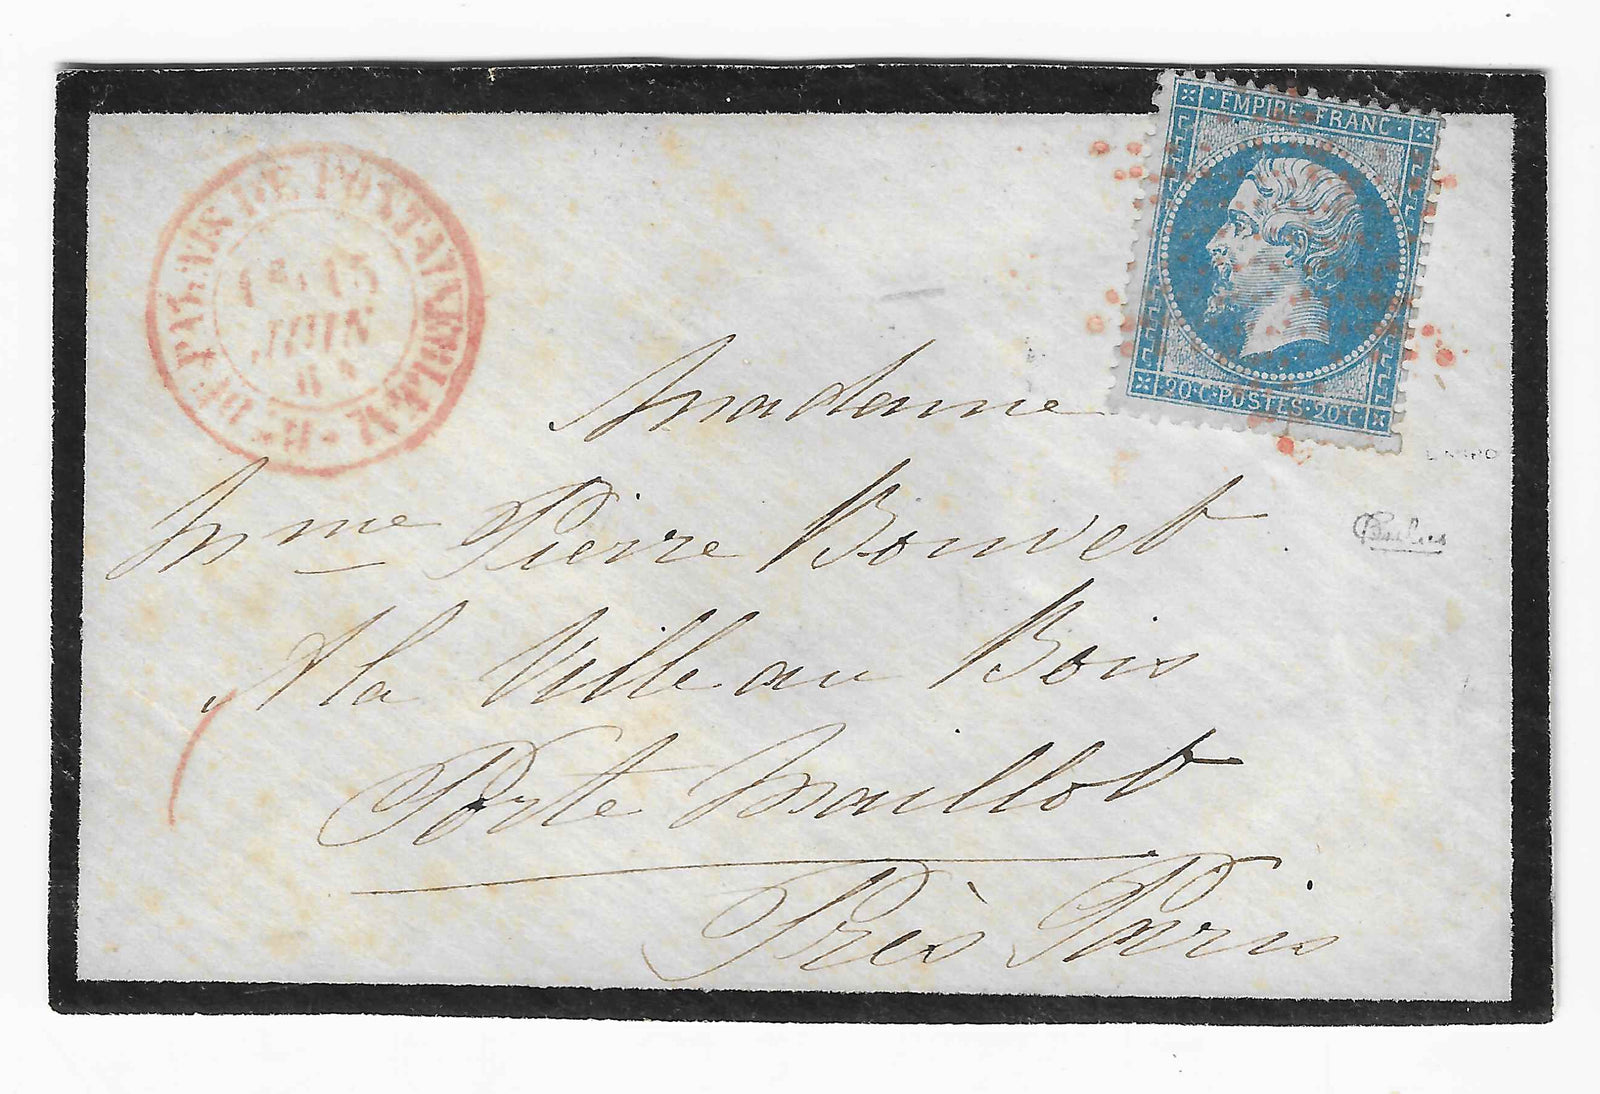 PALAIS DE FONTAINEBLEAU
15
JUIN
EMPIRE FRANC
20 C POSTES 20 C
Madame
Mme Pierre Bouvet
A la Ville au Bois
Porte Maillot
Près Paris